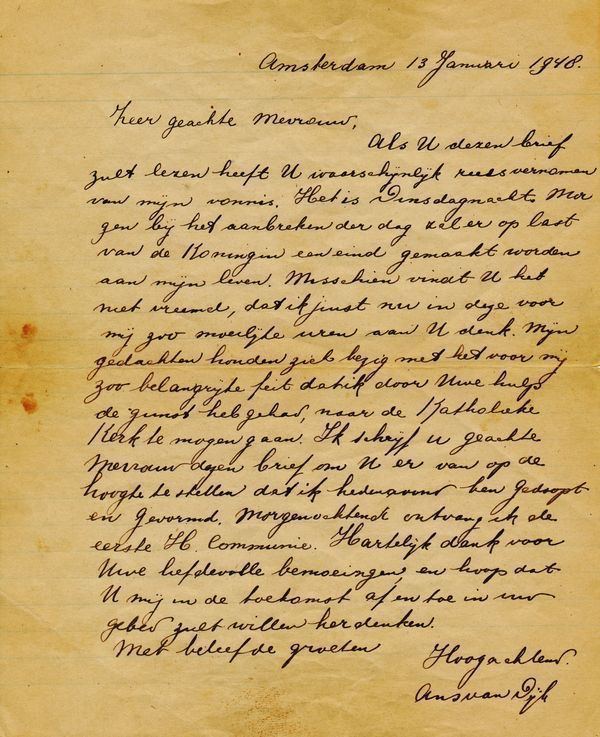 Amsterdam 13 Januari 1948.
Zeer geachte Mevrouw,
Als U dezen brief
zult lezen heeft U waarschijnlijk reeds vernomen
van mijn vonnis. Het is Dinsdagnacht. Mor
gen bij het aanbreken der dag zal er op last
van de Koningin een eind gemaakt worden
aan mijn leven. Misschien vindt U het
niet vreemd, dat ik juist nu in deze voor
mij zoo moeilijke uren aan U denk. Mijn
gedachten houden zich bezig met het voor mij
zoo belangrijke feit dat ik door Uwe hulp
de gunst heb gehad, naar de Katholieke
Kerk te mogen gaan. Ik schrijf u geachte
Mevrouw dezen brief om U er van op de
hoogte te stellen dat ik hedenavond ben gedoopt
en Gevormd. Morgenochtend ontvang ik de
eerste H. Communie. Hartelijk dank voor
Uwe liefdevolle bemoeingen, en hoop dat
U mij in de toekomst af en toe in uw
gebed zult willen herdenken.
Met beleefde groeten
Hoogachtend.
Ans van Dijk